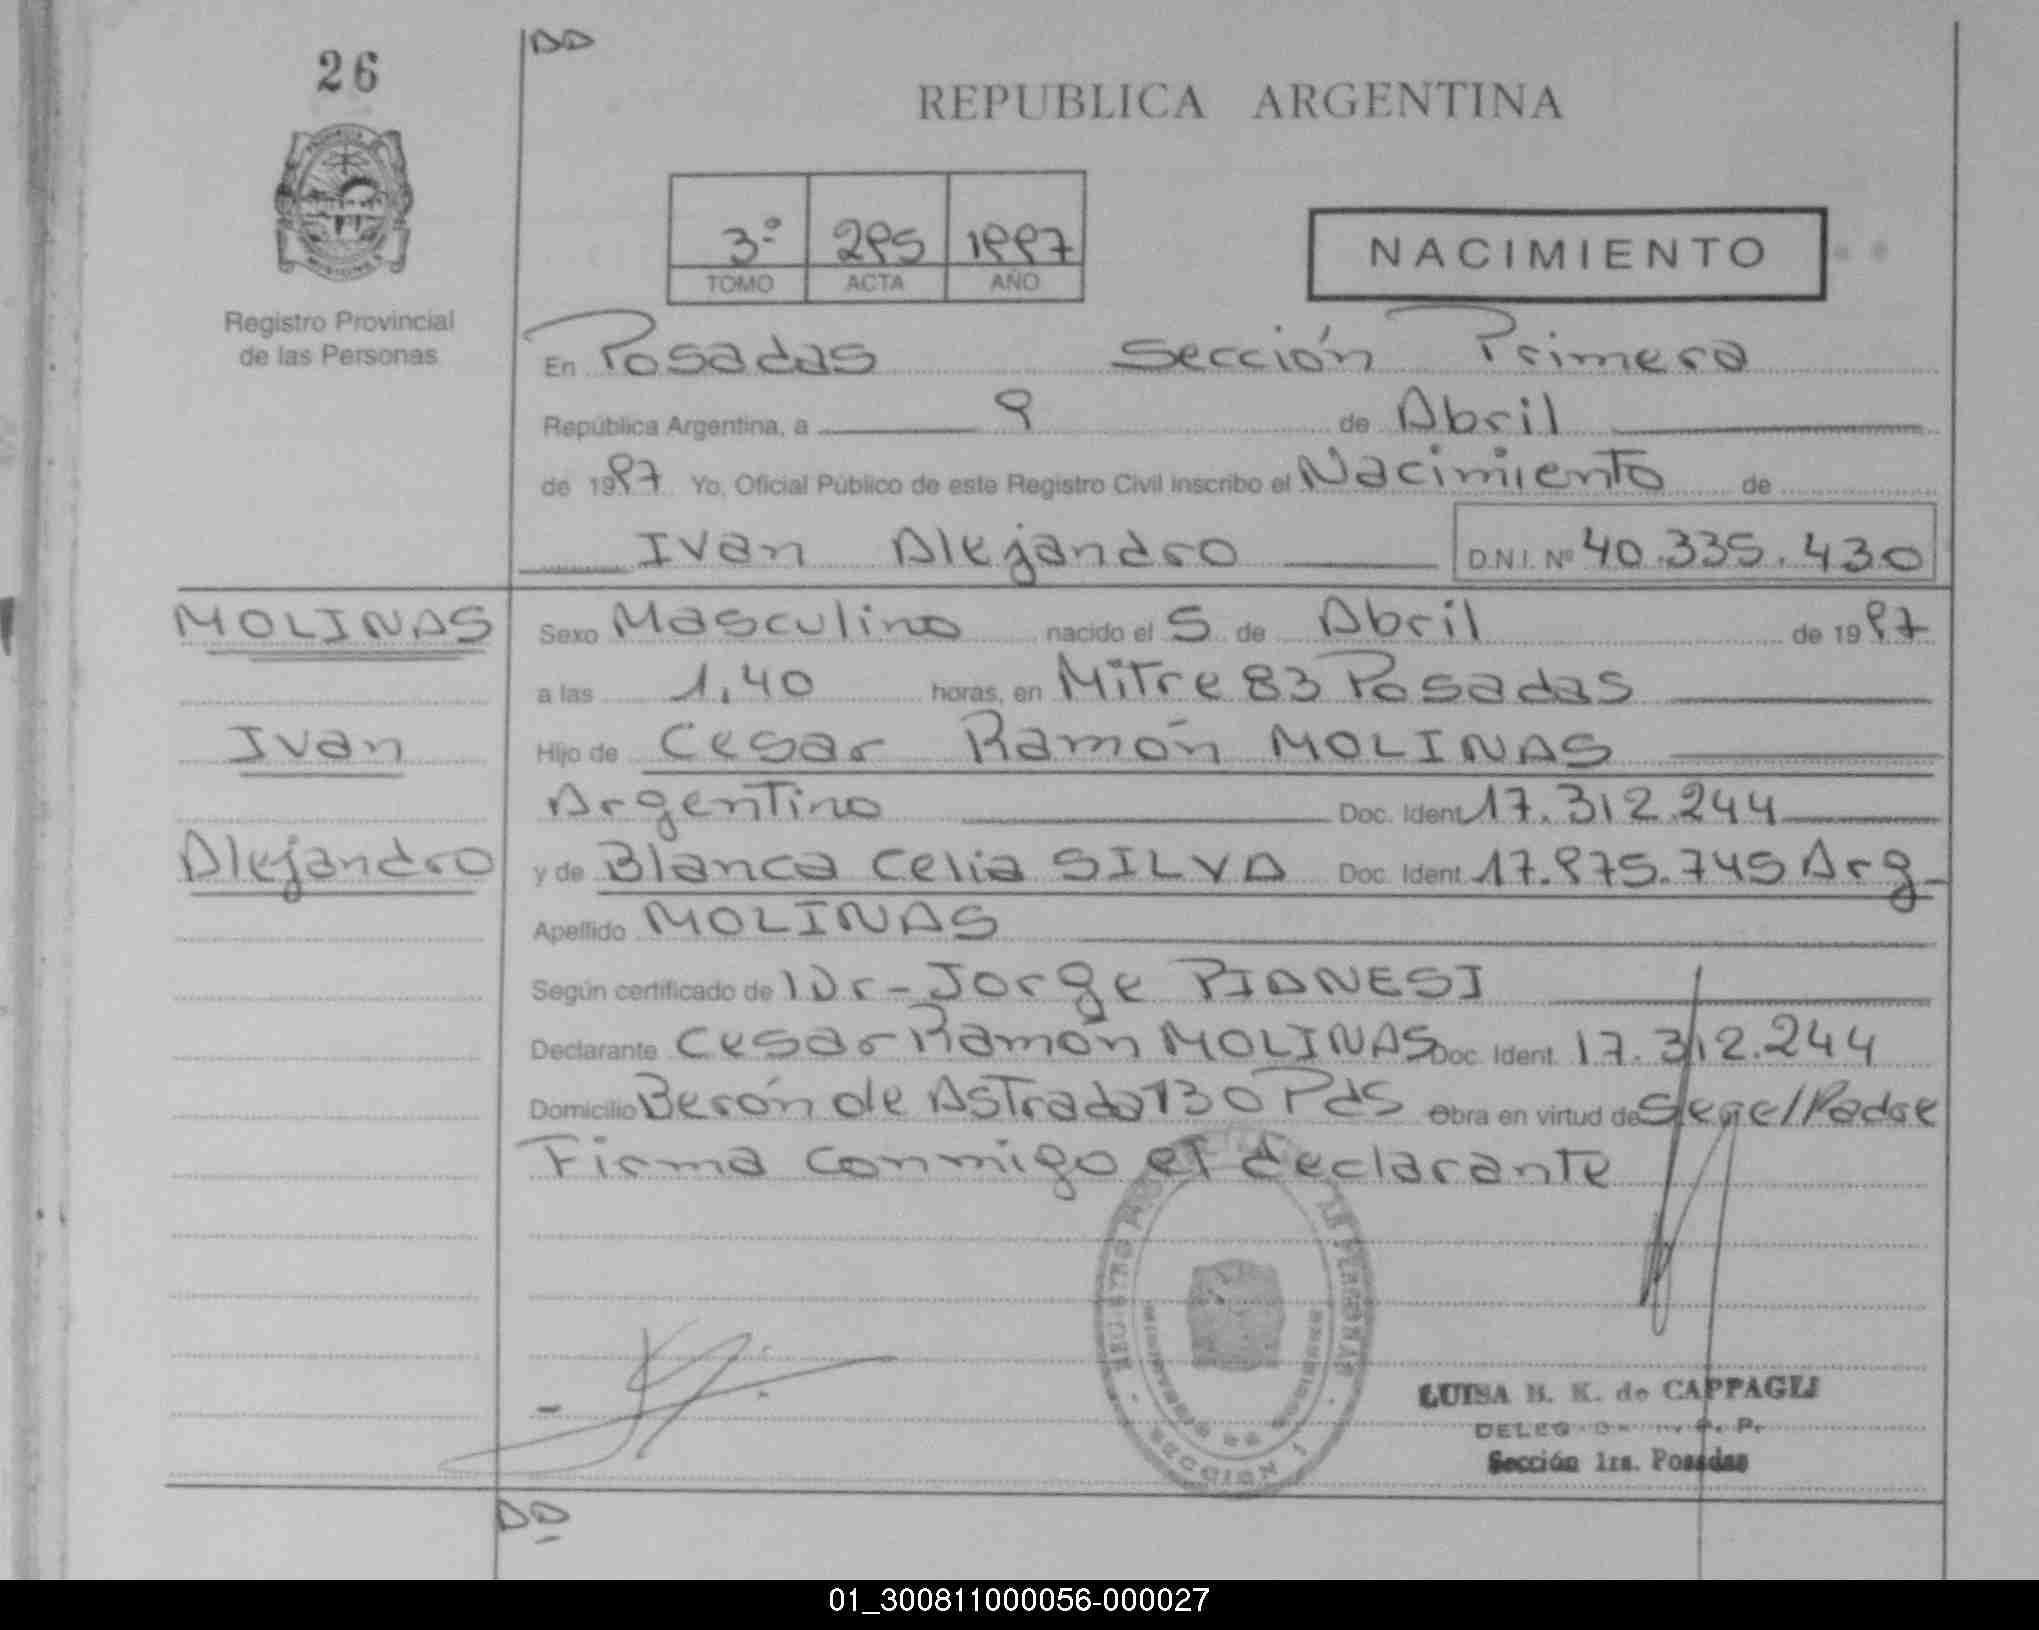 26
DD
REPUBLICA ARGENTINA
3º 295 1997
TOMO ACTA AÑO
NACIMIENTO
Registro Provincial
de las Personas
En Posadas Sección Primera
República Argentina, a 9 de Abril
de 1997 Yo, Oficial Público de este Registro Civil inscribo el Nacimiento de
Ivan Alejandro D.N.I. Nº 40.335.430
MOLINAS
Ivan
Alejandro
Sexo Masculino nacido el 5 de Abril de 1997
a las 1,40 horas, en Mitre 83 Posadas
Hijo de Cesar Ramón MOLINAS
Argentino Doc. Ident. 17.312.244
y de Blanca Celia SILVA Doc. Ident. 17.975.745 Arg.
Apellido MOLINAS
Según certificado de Dr-Jorge PIANESI
Declarante Cesar Ramón MOLINAS Doc. Ident. 17.312.244
Domicilio Berón de Astrada 130 Pdas Obra en virtud de /Padre
Firma conmigo el declarante
REGISTRO PERSONAS
MINISTERIO DE GOBIERNO
SECCION 1
LUISA B. K. de CAPPAGLI
Sección 1ra. Posadas
DD
01_300811000056-000027